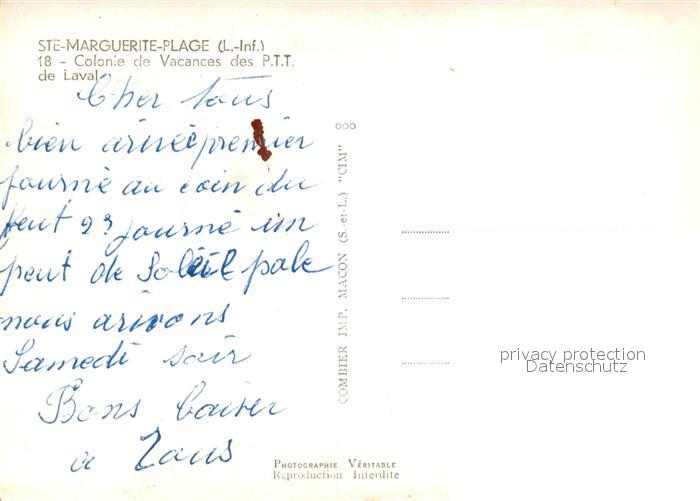 STE-MARGUERITE-PLAGE (L.-Inf.)
18 - Colonie de Vacances des P.T.T.
de Laval
Cher tous
bien arivée premier
journé au coin du
feut 2e journé un
peut de Soleil pale
nous arivons
Samedi soir
Bons baiser
a Tous
ooo
COMBIER IMP. MACON (S.-et-L.) "CIM"
privacy protection
Datenschutz
PHOTOGRAPHIE VÉRITABLE
Reproduction Interdite